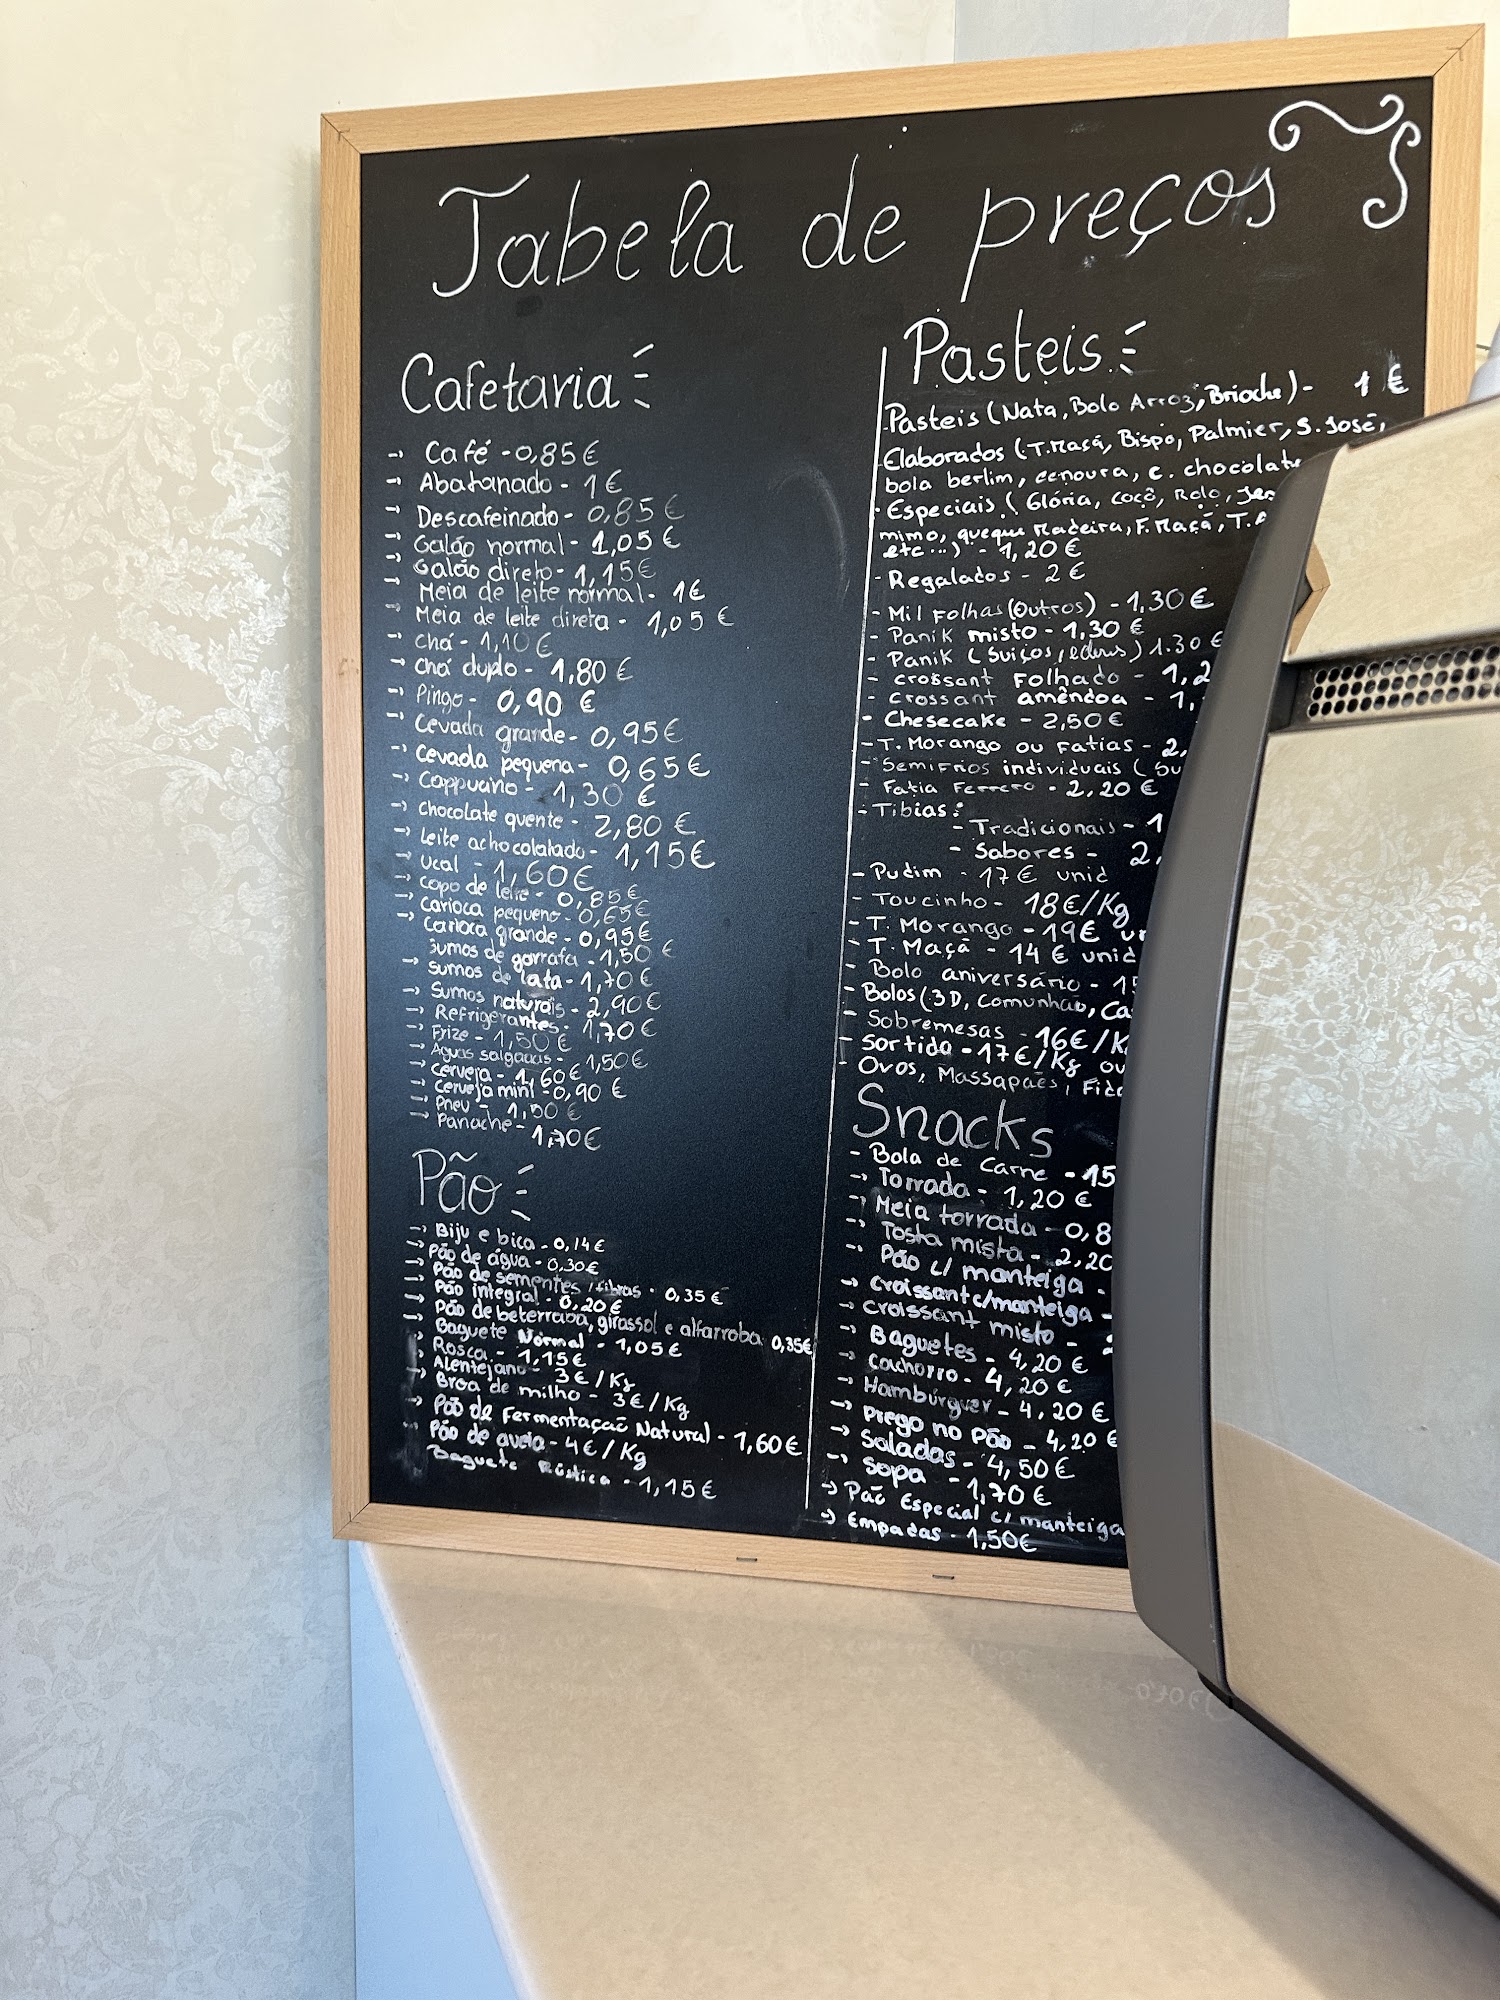 Tabela de preços
Cafetaria
→ Café - 0,85€
→ Abatanado - 1€
→ Descafeinado - 0,85€
→ Galão normal - 1,05€
→ Galão direto - 1,15€
→ Meia de leite normal - 1€
→ Meia de leite direta - 1,05€
→ Chá - 1,10€
→ Chá duplo - 1,80€
→ Pingo - 0,90€
→ Cevada grande - 0,95€
→ Cevada pequena - 0,65€
→ Cappucino - 1,30€
→ Chocolate quente - 2,80€
→ Leite achocolatado - 1,15€
→ Ucal - 1,60€
→ Copo de leite - 0,85€
→ Carioca pequeno - 0,65€
→ Carioca grande - 0,95€
Sumos de garrafa - 1,50€
→ Sumos de lata - 1,70€
→ Sumos naturais - 2,90€
→ Refrigerantes - 1,70€
→ Frize - 1,50€
→ Aguas salgadas - 1,50€
→ Cerveja - 1,60€
→ Cerveja mini - 0,90€
→ Pneu - 1,50€
→ Panache - 1,70€
Pão
→ Biju e bica - 0,14€
→ Pão de água - 0,30€
→ Pão de sementes / fibras - 0,35€
→ Pão integral - 0,20€
→ Pão de beterraba, girassol e alfarroba 0,35€
→ Baguete Normal - 1,05€
→ Rosca - 1,15€
→ Alentejano - 3€/Kg
→ Broa de milho - 3€/Kg
→ Pão de Fermentação Natural - 1,60€
→ Pão de aveia - 4€/Kg
Baguete Rústica - 1,15€
Pasteis
- Pasteis (Nata, Bolo Arroz, Brioche) - 1€
Elaborados (T.Maçã, Bispo, Palmier, S. José,
bola berlim, cenoura, c. chocolate
- Especiais (Glória, Cocô, Rolo,
mimo, queque Madeira, F. Maçã, T.
etc...) - 1,20€
- Regalados - 2€
- Mil Folhas (Outros) - 1,30€
- Panik misto - 1,30€
- Panik (Suiços, ) 1.30€
- croissant Folhado - 1,2
- Crossant amêndoa - 1,
- Chesecake - 2,50€
- T. Morango ou Fatias - 2,
- Semifrios individuais (
- Fatia Ferrero - 2,20€
- Tibias:
- Tradicionais - 1
- Sabores - 2,
- Pudim - 17€ unid
- Toucinho - 18€/Kg
- T. Morango - 19€
- T. Maçã - 14€ unid
- Bolo aniversário - 1
- Bolos (3D, Comunhão,
- Sobremesas - 16€/K
- Sortido - 17€/Kg ou
- Ovos, Massapães,
Snacks
- Bola de Carne - 15
→ Torrada - 1,20€
→ Meia torrada - 0,8
→ Tosta mista - 2,20
→ Pão c/ manteiga -
→ Croissant c/manteiga -
→ Croissant misto -
→ Baguetes - 4,20€
→ Cachorro - 4,20€
→ Hambúrguer - 4,20€
→ Prego no Pão - 4,20€
→ Saladas - 4,50€
→ Sopa - 1,70€
→ Pão Especial c/ manteiga
→ Empadas - 1,50€